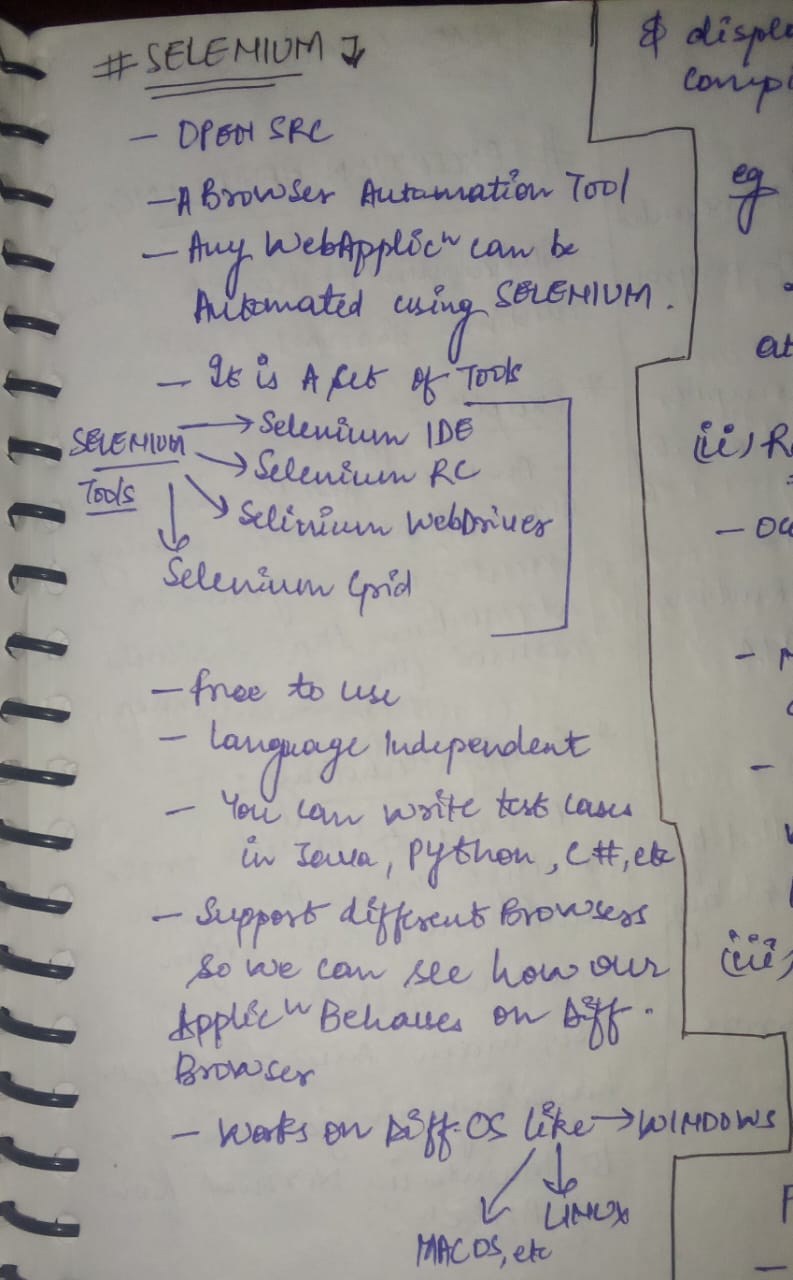 # SELENIUM
- OPEN SRC
- A Browser Automation Tool
- Any WebApplicⁿ can be
Automated using SELENIUM.
- It is A Set of Tools
SELENIUM
Tools
→ Selenium IDE
→ Selenium RC
→ Selinium WebDriver
Selenium Grid
- free to use
- Language Independent
- You can write test cases
in Java, Python, C#, etc
- Support different Browsers
So we can see how our
Applicⁿ Behaves on Diff.
Browser
- Works on Diff-OS like → WINDOWS
LINUX
MACOS, etc
& displ
compi
eg
at
(ii) R
- oc
(iii)